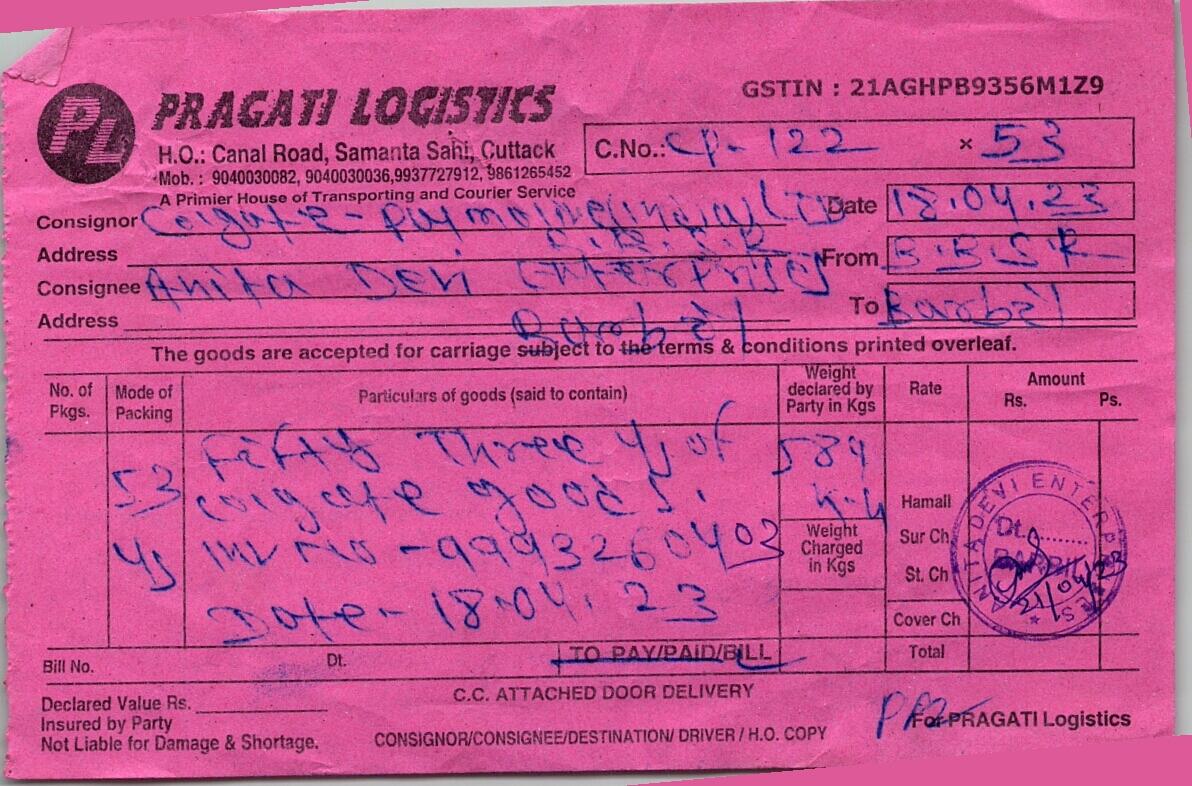 PL
PRAGATI LOGISTICS
GSTIN : 21AGHPB9356M1Z9
H.O.: Canal Road, Samanta Sahi, Cuttack
Mob. : 9040030082, 9040030036,9937727912, 9861265452
A Primier House of Transporting and Courier Service
C.No.: CP- 122 × 53
Consignor Colgate - Palmolive(India) LTD
Date 18.04.23
Address B.B.S.R
From B.B.S.R
Consignee Anita Devi Enterprises
Address Barbil
To Barbil
The goods are accepted for carriage subject to the terms & conditions printed overleaf.
No. of Pkgs. Mode of Packing Particulars of goods (said to contain) Weight declared by Party in Kgs Rate Amount Rs. Ps.
Fifty Three of
53 Colgate goods. 589 K.G
Inv No - 9993260403
Date - 18.04.23
Weight Charged in Kgs
Hamall
Sur Ch
St. Ch
Cover Ch
Total
ANITA DEVI ENTERPRISES
Dt.........
BARBIL
Bill No. Dt. TO PAY/PAID/BILL
Declared Value Rs.
Insured by Party
Not Liable for Damage & Shortage.
C.C. ATTACHED DOOR DELIVERY
CONSIGNOR/CONSIGNEE/DESTINATION/ DRIVER / H.O. COPY
For PRAGATI Logistics